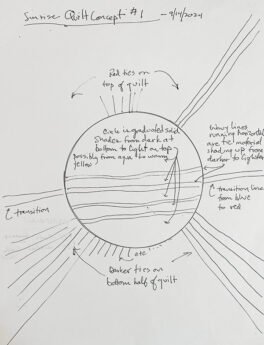 Sunrise Quilt Concept #1 - 9/17/2024
Red ties on
top of quilt
Circle is graduated solid
shades from dark at
bottom to light on top
possibly from aqua to warm
yellow
Wavy lines
running horizontal
are tie material
shading up from
darker to lighter
transition line
from blue
to red
transition
etc
Darker ties on
bottom half of quilt